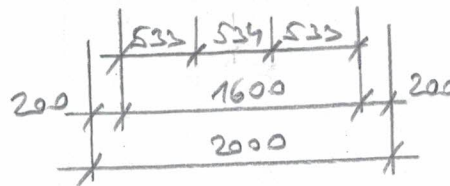 533 534 533
200 1600 200
2000